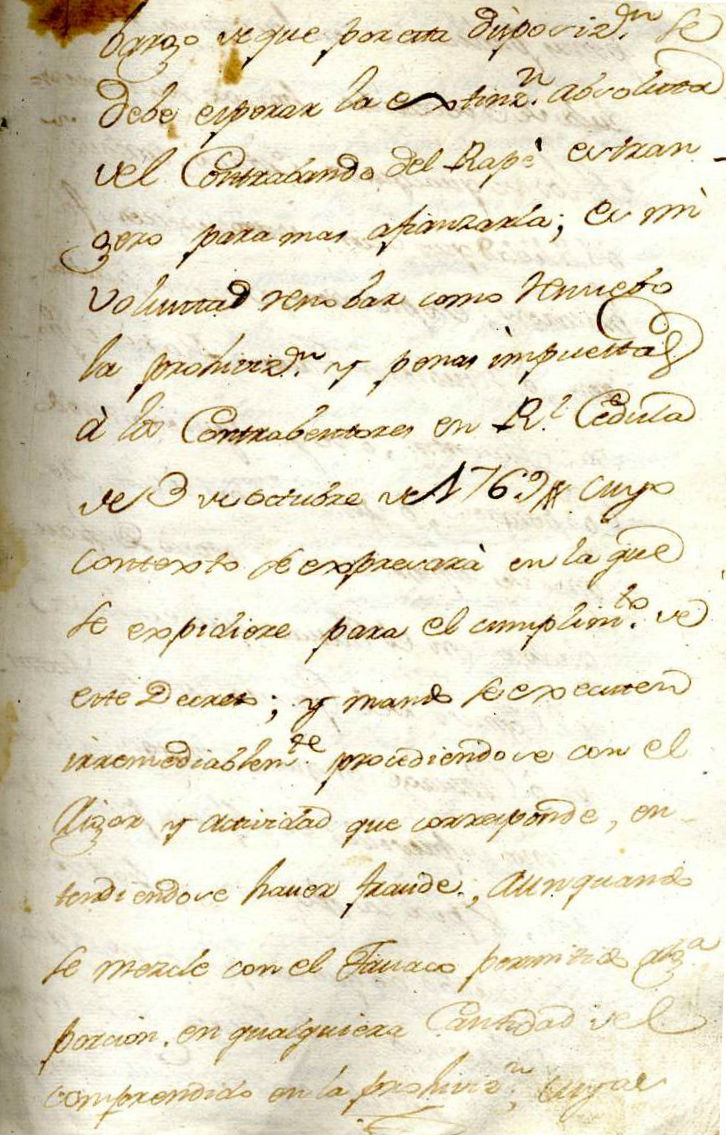 bargo de que por esta disposiz.on se
debe esperar la extinz.n absoluta
del Contrabando del Rapè estran-
gero para mas afianzarla; es mi
voluntad renobar como renuebo
la prohiviz.on y penas impuestas
à los Contrabentores en R.l Cedula
de 3 de octubre de 1769 cuyo
contexto se expresarà en la que
se expidiere para el cumplim.to de
este Decreto; y mando se executen
irremediablem.te procediendose con el
rigor y actividad que corresponde, en-
tendiendose haver fraude, aunquando
se mezcle con el Tavaco permitido alg.a
porcion, en qualquiera Cantidad del
comprendido en la prohiviz.n, cuyas